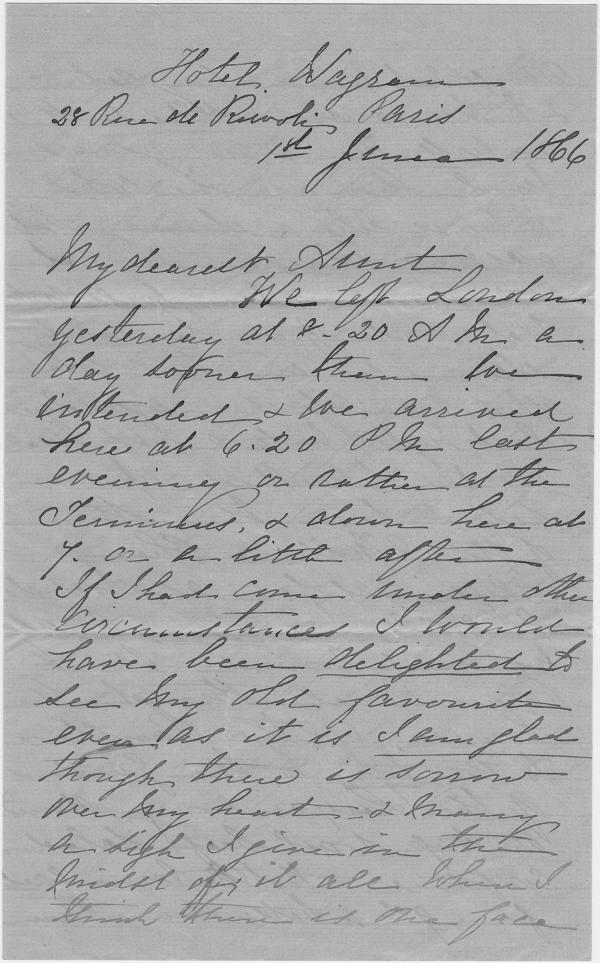 Hotel Wagram
28 Rue de Rivoli Paris
1st June 1866
My dearest Aunt
We left London
yesterday at 8-20 A M a
day sooner than we
intended & we arrived
here at 6.20 P M last
evening or rather at the
Terminus, & down here at
7. or a little after
If I had come under other
circumstances I would
have been delighted to
see my old favourite
even as it is I am glad
though there is sorrow
over my heart & many
a sigh I give in the
midst of it all when I
think there is one face